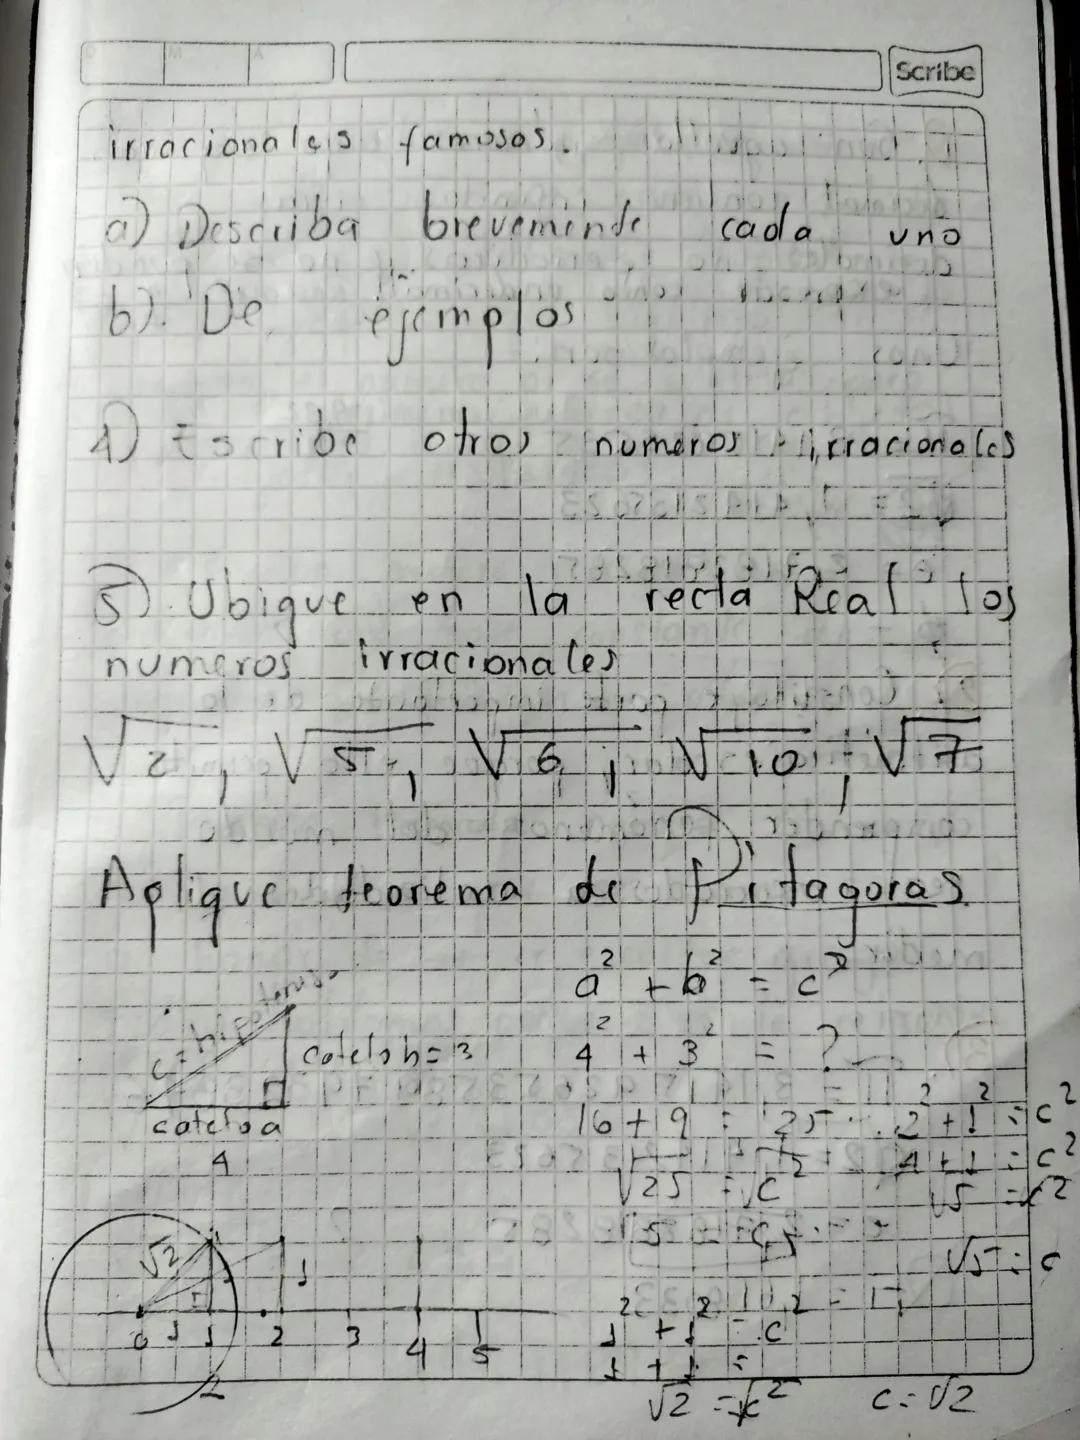 Scribe
irracionales famosos.
a) Describa brevemende cada uno
b). De ejemplos
4) Escribe otros numeros irracionales
5). Ubique en la recta Real los
numeros irracionales
√2, √5, √6, √10, √7
Aplique teorema de Pitagoras
a² + b² = c²
4² + 3² = ?
16 + 9 = 25
√25 = √c²
5 = c
c = hipotenusa
cateto b = 3
cateto a
4
2² + 1² = c²
4 + 1 = c²
√5 = c²
√5 = c
√2
1
0 1 1 2 3 4 5
1² + 1² = c²
1 + 1 =
√2 = √c² c = √2